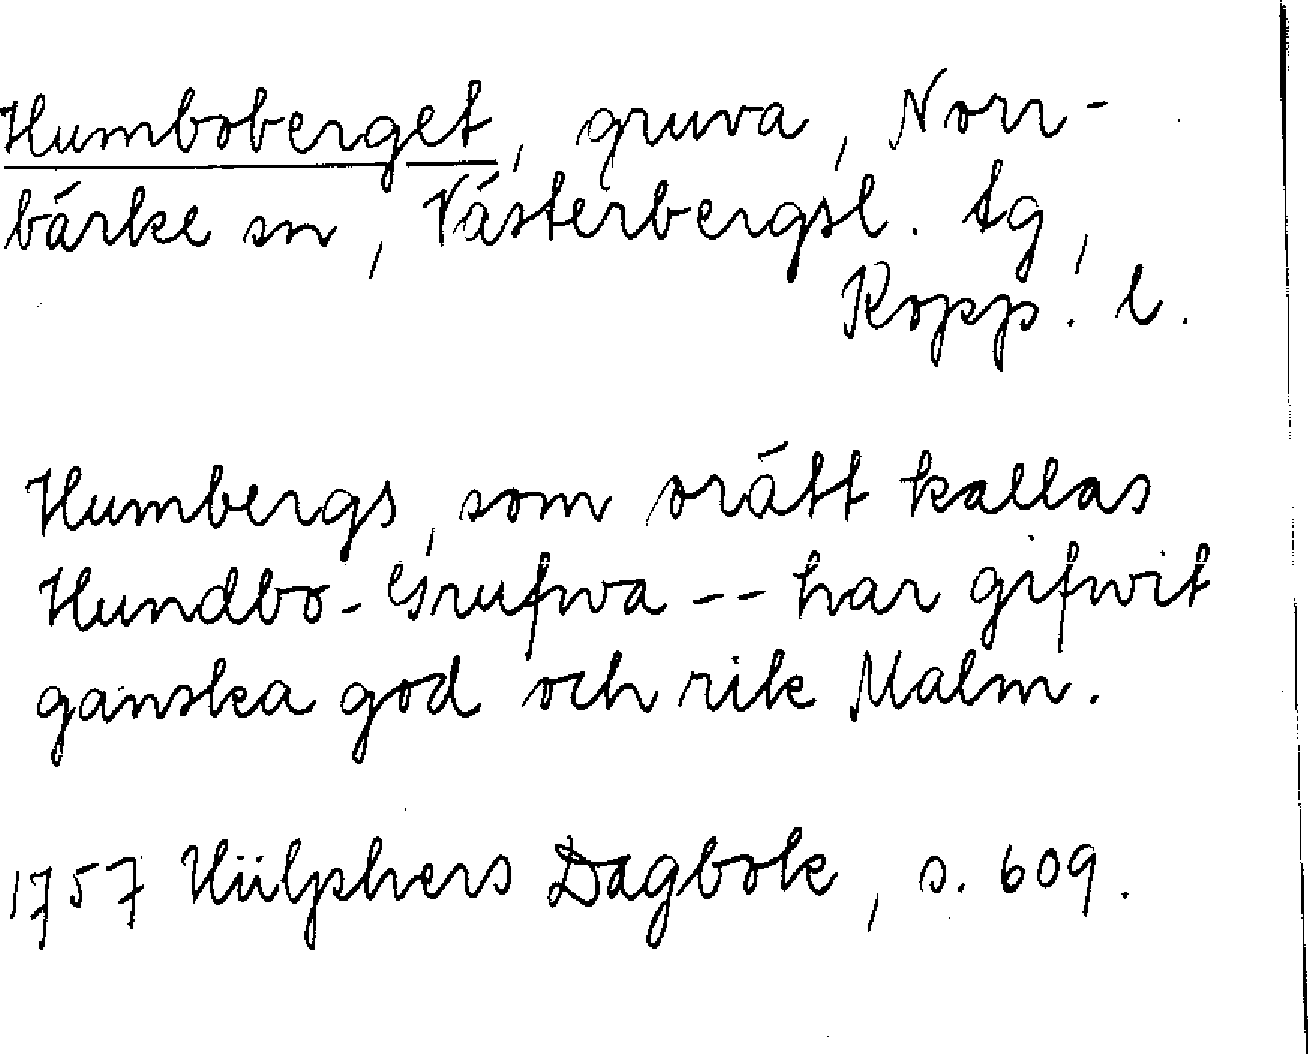 Humboberget, gruva, Norr-
bärke sn, Västerbergsl. tg,
Kopp. l.
Humbergs, som orätt kallas
Hundbo-Grufwa -- har gifwit
ganska god och rik Malm.
1757 Hülphers Dagbok, s. 609.